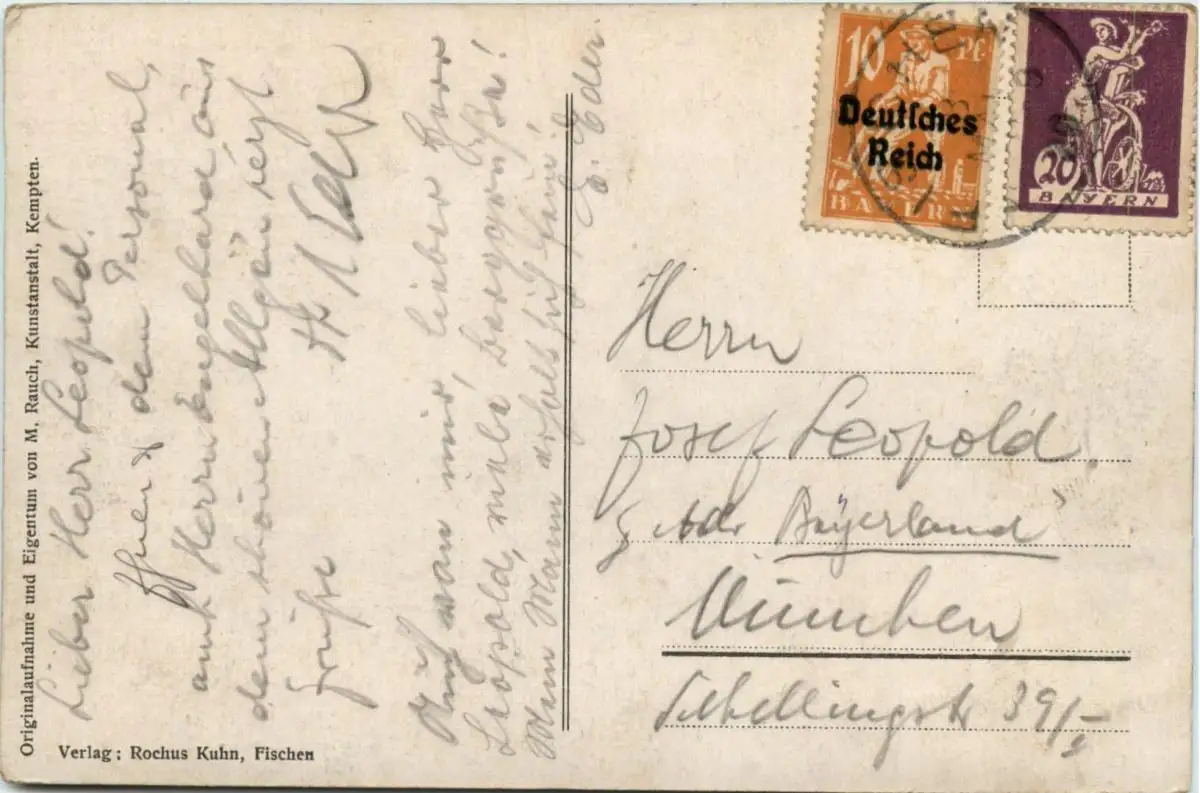 Lieber Herr Leopold!
Ihnen & dem Personal,
auch Herrn Engelhard aus
dem schönen Allgäu herzl
Grüsse
Auch von mir, lieber Herr
Leopold, viele Berggrüße!
Mein Mann erholt sich fein!
E. Eder
10 Pf
Deutsches
Reich
BAYERN
20
BAYERN
Herrn
Josef Leopold
"Bayerland"
München
Schellingstr 39/I
Originalaufnahme und Eigentum von M. Rauch, Kunstanstalt, Kempten.
Verlag: Rochus Kuhn, Fischen